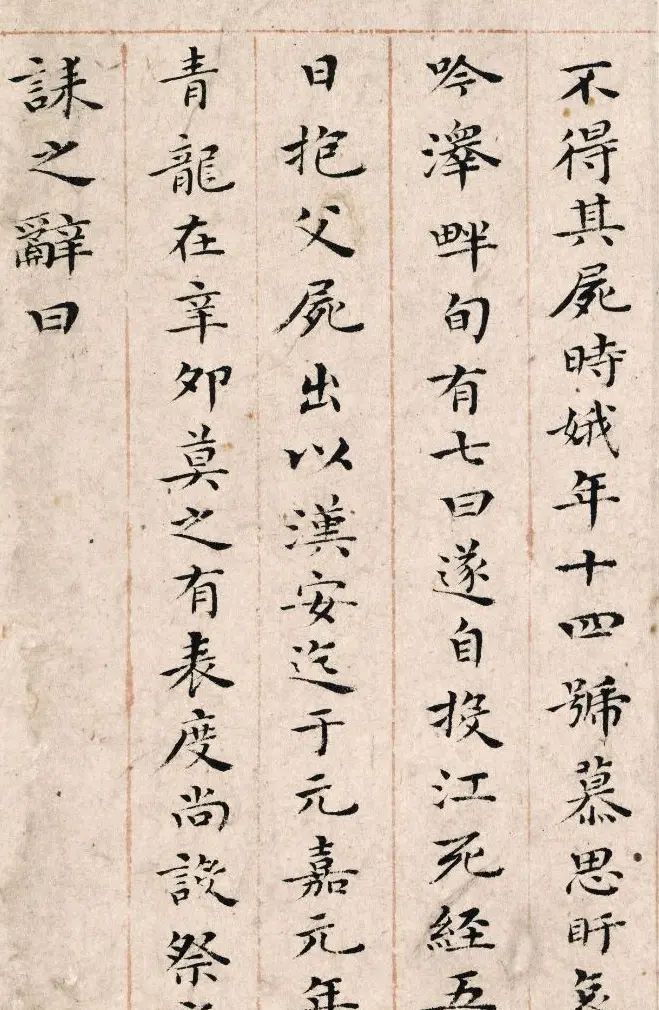 不得其屍時娥年十四號慕思盱哀
吟澤畔旬有七日遂自投江死経五
日抱父屍出以漢安迄于元嘉元年
青龍在辛卯莫之有表度尚設祭
誄之辭曰